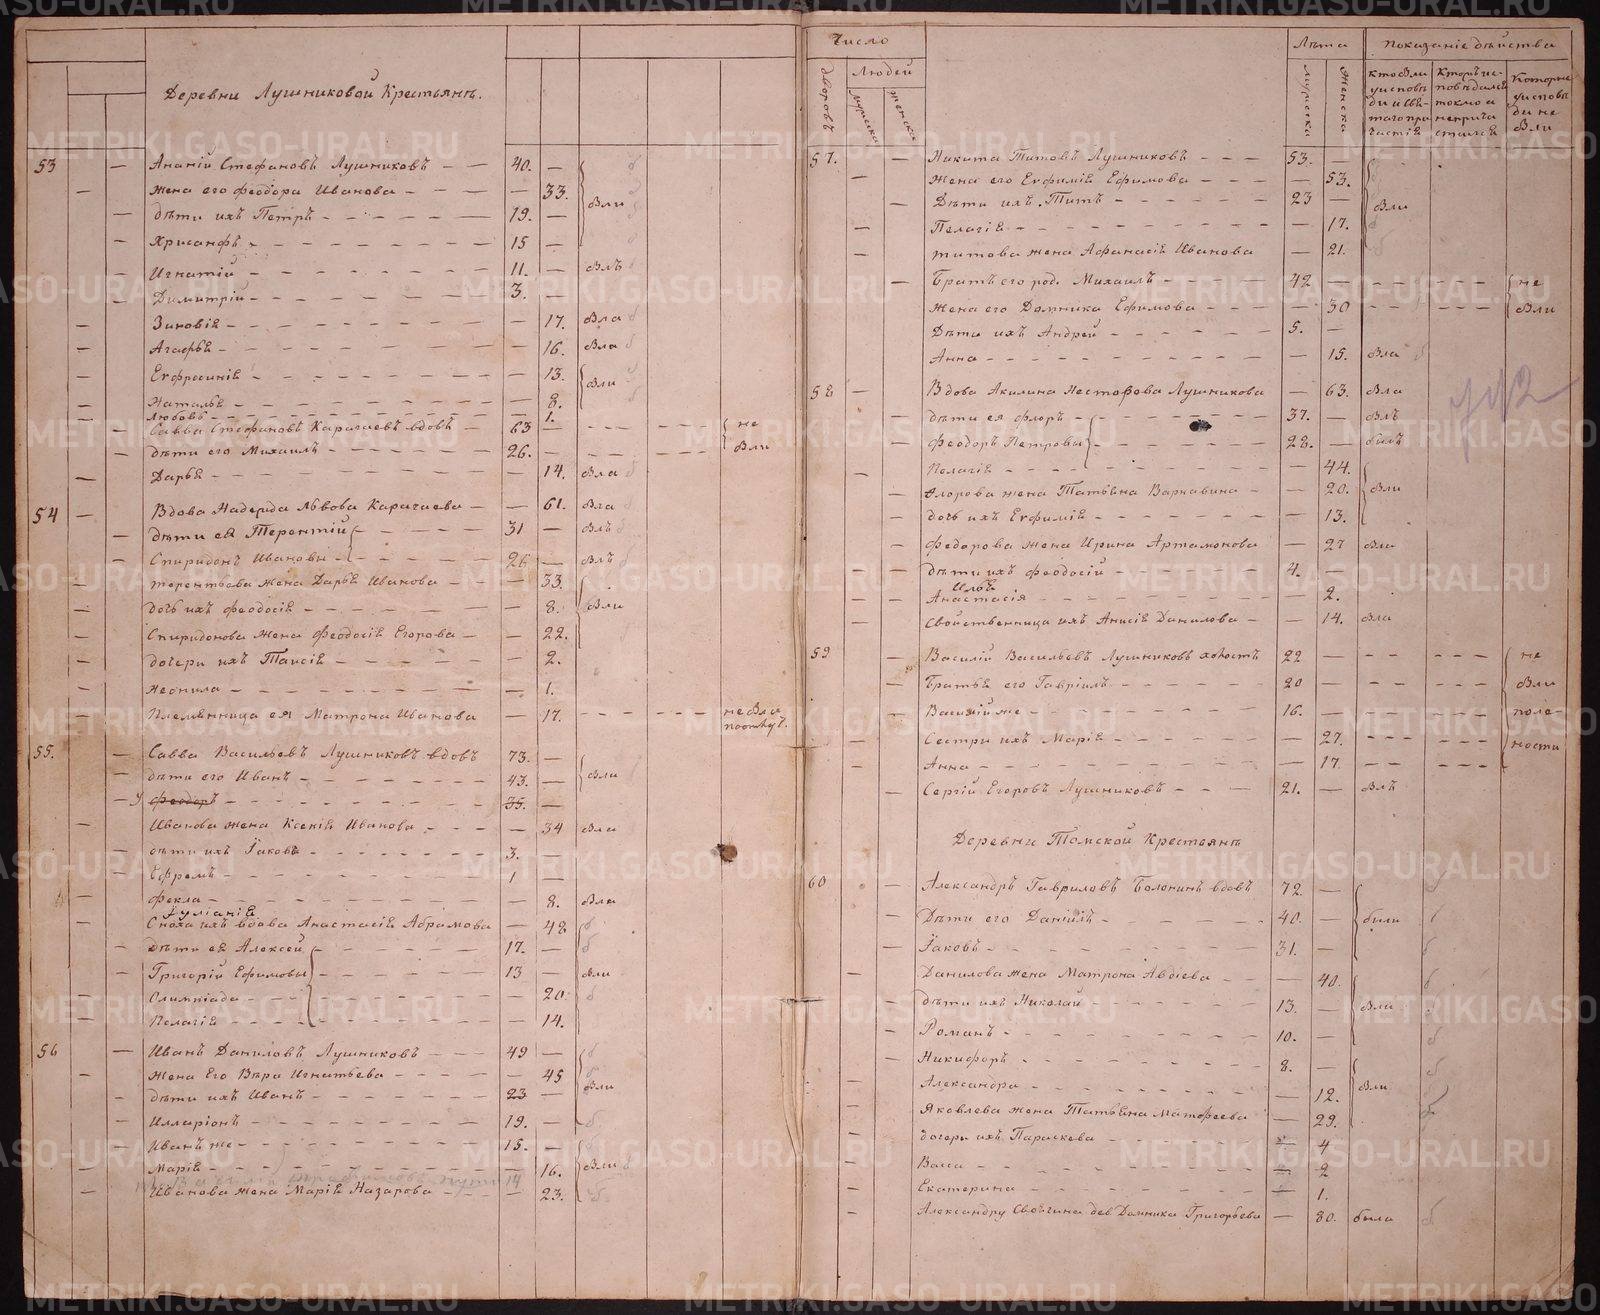 Деревни Лушниковой Крестьянъ.
53 — Ананій Стефановъ Лушниковъ — — 40. —
— жена его Феодора Иванова — — 33. вли
— дѣти ихъ Петръ — 19. —
— Хрисанфъ — 15 —
— Игнатій — 11. — влъ
— Димитрій — 3. —
— Зиновія — — 17. Вла
— Агафья — — 16. Вла
— Евфросинія — — 13. вли
— Наталья — — 8.
— Любовь — — 1.
— Савва Стефановъ Карачаевъ вдовъ — 63 — не
— дѣти его Михаилъ — 26. — Вли
— Дарья — — 14. Вла
54 — Вдова Надежда Львова Карачаева — — 61. Вла
— дѣти ея Терентій — 31 — Влъ
— Спиридонъ Ивановы — 26 — влъ
— терентьева жена Дарья Иванова — — 33.
— дочь ихъ Феодосія — — 8. Вли
— Спиридонова жена Феодосія Егорова — — 22.
— дочери ихъ Таисія — — 2.
— Неонила — — 1.
— Племянница ея Матрона Иванова — 17. не Вла
55. — Савва Васильевъ Лушниковъ вдовъ 73. —
— дѣти его Иванъ — 43. — вли
— у Феодоръ — 35. —
— Иванова жена Ксенія Иванова — — 34 Вла
— дѣти ихъ Іаковъ — 3. —
— Ефремъ — 1 —
— Фекла — — 8. Вла
Іуліанія
— Сноха ихъ вдова Анастасія Абрамова — 48
— дѣти ея Алексей — 17. —
— Григорій Ефимовы — 13 — вли
— Олимпіада — — 20.
— Пелагія — — 14.
56 — Иванъ Даниловъ Лушниковъ — 49 —
— Жена Его Вѣра Игнатьева — — 45 Вли
— дѣти ихъ Иванъ — 23 —
— Илларіонъ — 19. —
— Иванъ же — 15. —
— Марія — — 16. Вли
— Иванова жена Марія Назарова — — 23.
Число
Лѣта
Показаніе дѣйства
дворовъ
Людей
мужска
женска
мужска
женска
57. — Никита Титовъ Лушниковъ — 53. —
— жена его Евфимія Ефимова — — 53.
— Дѣти ихъ Титъ — 23 — Вли
— Пелагія — — 17.
— титова жена Афанасія Иванова — 21.
— Братъ его род. Михаилъ — 42 — не
Жена его Домника Ефимова — — 30 Вли
Дѣти ихъ Андрей — 5. —
Анна — — 15. вла
58 — Вдова Акилина Несторова Лушникова — 63. Вла
— дѣти ея Флоръ — 37. — влъ
— Феодоръ Петровы — 28. — былъ
— Пелагія — — 44.
Флорова жена Татьяна Варнавина — — 20. Вли
— дочь ихъ Евфимія — — 13.
— Федорова жена Ирина Артамонова — 27 вли
— — дѣти ихъ Феодосій — 4. —
— — Анастасія — — 2.
— Свойственница ихъ Анисія Данилова — — 14. Вла
59 — Василій Васильевъ Лушниковъ холостъ 22 — не
— Братья его Гавріилъ — 20 — Вли
— Василій же — 16. — поле-
— Сестры ихъ Марія — — 27. ности
— Анна — — 17.
— Сергій Егоровъ Лушниковъ — 21. — влъ
Деревни Томской Крестьянъ
60 — Александръ Гавриловъ Болонинъ вдовъ 72. —
— Дѣти его Даніилъ — 40. — были
— Іаковъ — 31. —
— Данилова жена Матрона Авдіева — — 40.
— дѣти ихъ Николай — 13. — Вли
— Романъ — 10. —
— Никифоръ — 8. —
— Александра — — 12. Вли
— Яковлева жена Татьяна Матфеева — 29.
— дочери ихъ Параскева — — 4
— Васса — — 2
— Екатерина — — 1.
— Александру Своячина дев Домника Григорьева — 80. была
METRIKI.GASO-URAL.RU